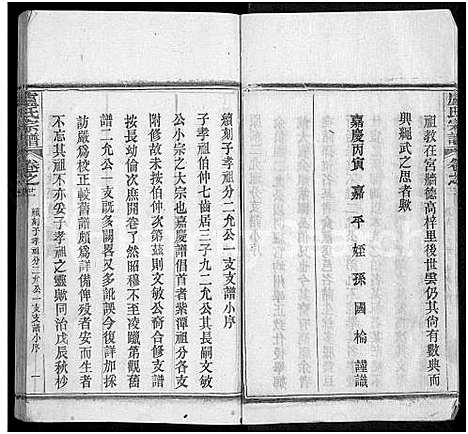 祖教在宮牆德高梓里後世雲仍其尚有數典而
興繩武之思者歟
嘉慶丙寅嘉平姪孫國楡謹識
續刻子孝祖分二允公一支支譜小序
子孝祖伯仲七齒居三子九二允公其長嗣文敏
公小宗之大宗也嘉慶譜倡首者紫潭祖合修支譜
附修故未分伯仲次第茲則文敏公裔合修支譜
按長幼倫次庶開卷了然昭穆不至凌躐第觀舊
譜二允公一支既多闕畧又多訛誤今復詳加採
訪嚴為校正較舊譜頗為詳備俾歿者安而生者
不忘其祖不亦妥子孝祖之靈歟同治戊辰秋杪
盧氏宗譜
卷之
續刻子孝祖分二允公一支支譜小序
一